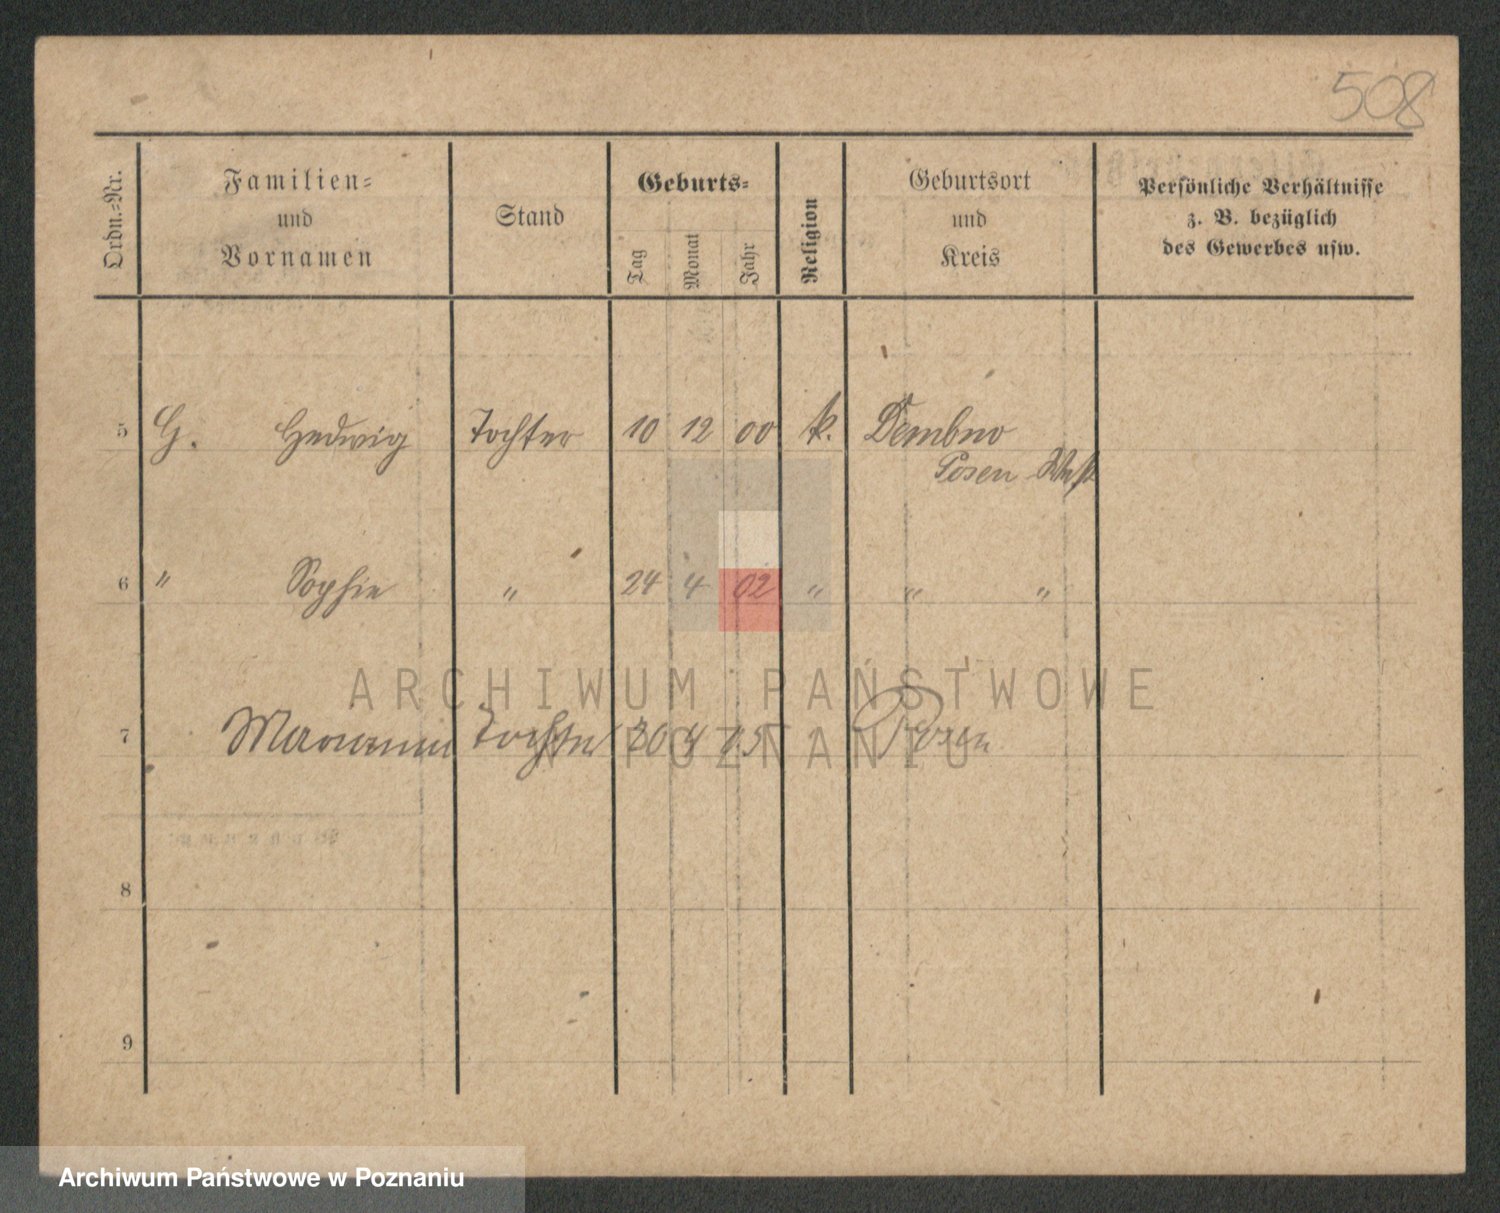 508
Ordn.-Nr.
Familien-
und
Vornamen
Stand
Geburts-
Tag
Monat
Jahr
Religion
Geburtsort
und
Kreis
Persönliche Verhältnisse
z. B. bezüglich
des Gewerbes usw.
5 G. Hedwig Tochter 10 12 00 k. Dembno
Posen West
6 " Sophie " 24 4 02 " " "
ARCHIWUM PAŃSTWOWE
7 Marianna Tochter 30 4 15 Posen
W POZNANIU
8
9
Archiwum Państwowe w Poznaniu